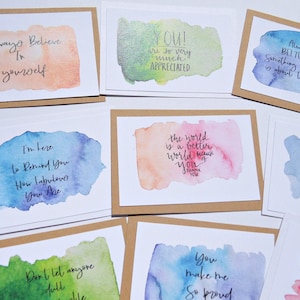 Always Believe
In
yourself
YOU!
are so very
much
APPRECIATED
Always
BELIEVE
Something
is about
I'm here
to Remind You
How Fabulous
You Are
the world
is a better
world because
of
YOU
Don't let anyone
dull
You
make me
So proud